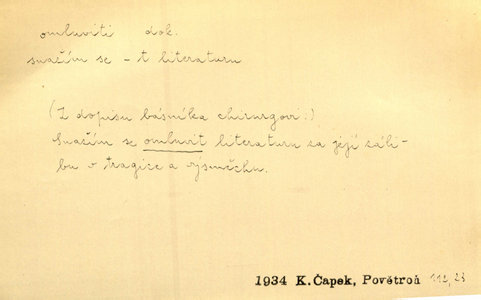 omluviti dok.
snažím se -t literaturu
(Z dopisu básníka chirurgovi.)
Snažím se omluvit literaturu za její záli-
bu v tragice a výsměchu.
1934 K. Čapek, Povětroň 112, 23